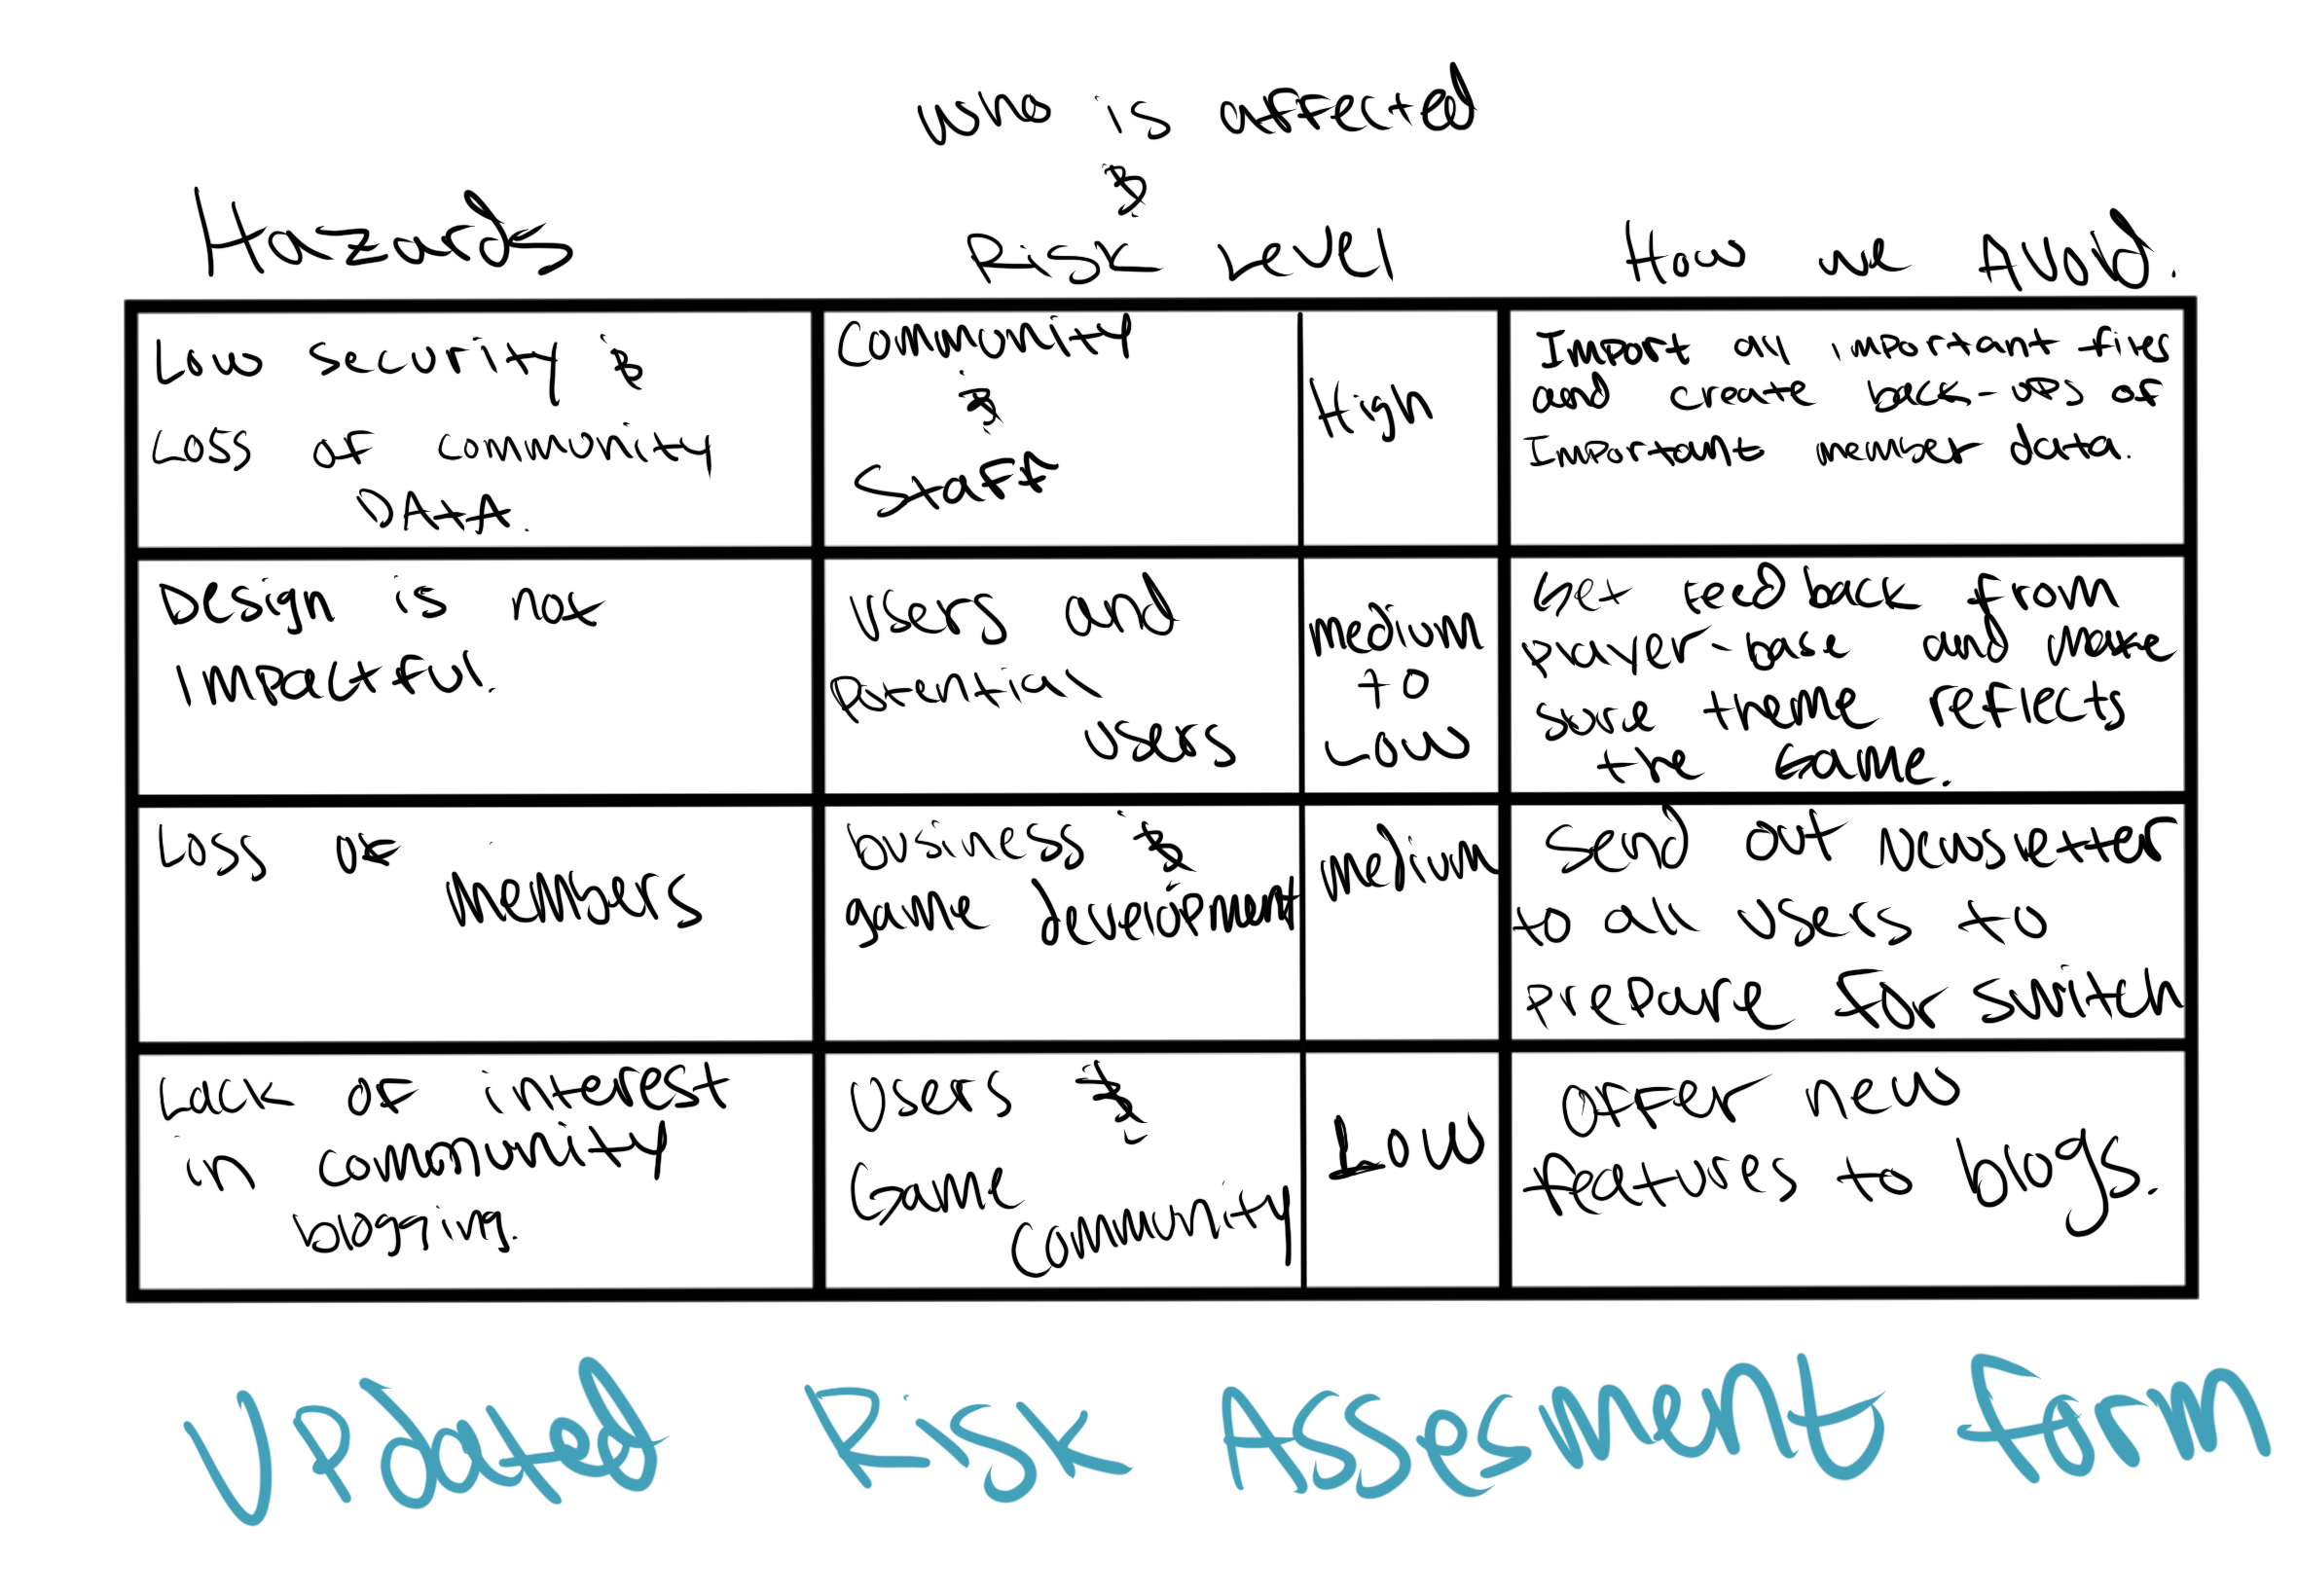 Who is affected
&
Hazards Risk Level How we Avoid.
Low security &
Loss of community
DAtA.
Community
&
Staff
High
Import all important files
and create back-ups of
Important member data.
Design is not
impactful.
Users and
Potential
users
medium
to
Low
Get feedback from
Player-base and make
sure theme reflects
the Game.
Loss of
Members
business &
game development
Medium
Send out Newsletter
to all users to
prepare for switch
Lack of interest
in community
blogging.
Users &
Game
Community
Low
Offer new
features to blogs.
Updated Risk Assesment Form